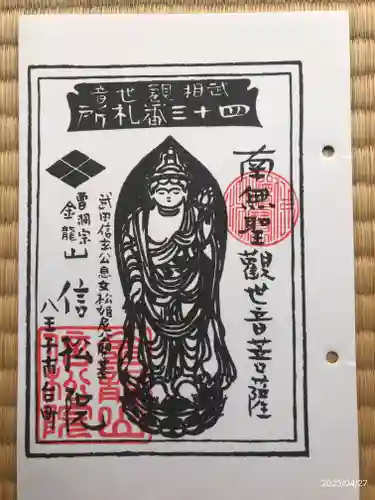 武相観世音
四十三番札所
南無聖観世音菩薩
武田信玄公息女松姫尼公開基
曹洞宗
金龍山信松院
八王子市台町
2023/04/27